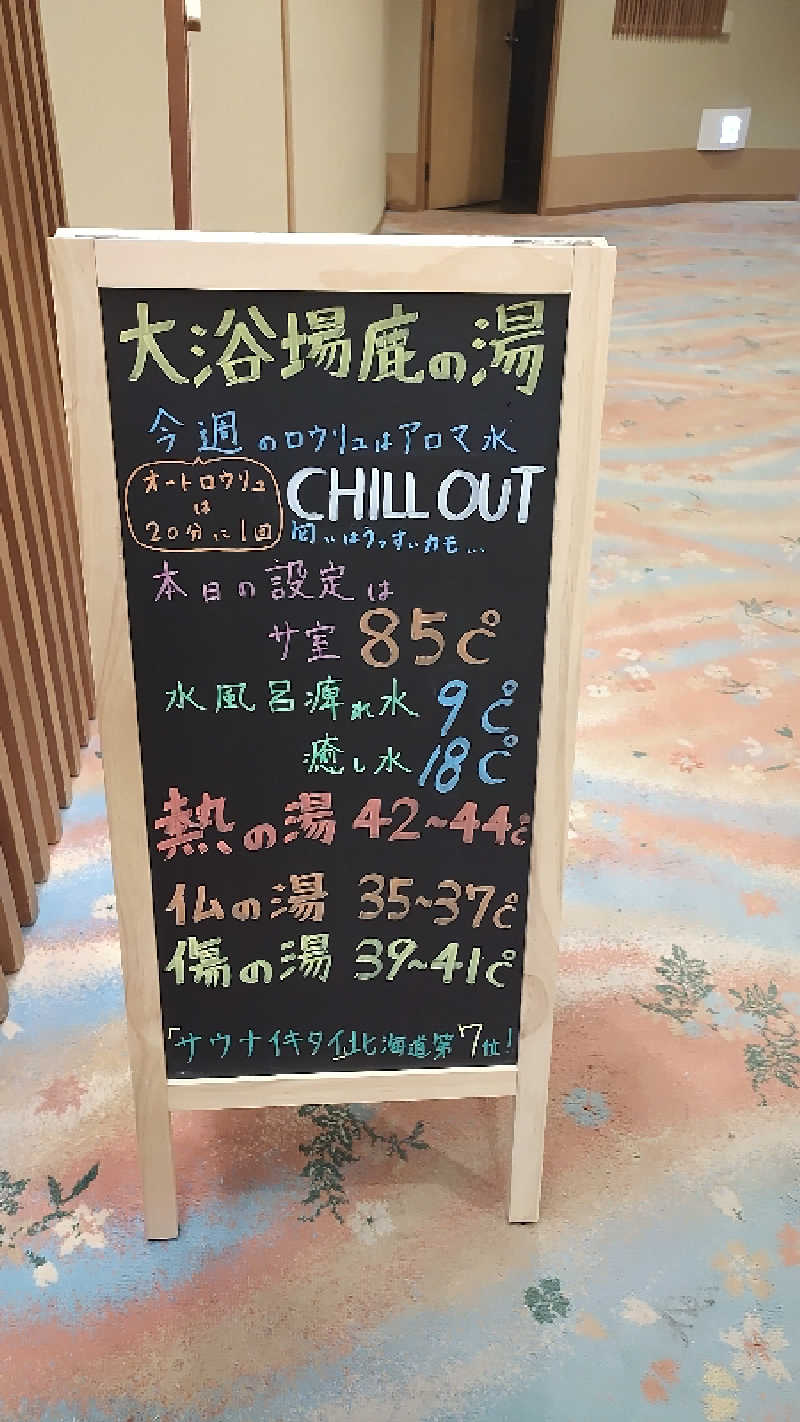 大浴場鹿の湯
今週のロウリュはアロマ水
オートロウリュ
は
20分に1回
CHILL OUT
匂いはうっすいカモ...
本日の設定は
サ室 85℃
水風呂痺れ水 9℃
癒し水 18℃
熱の湯 42~44℃
仏の湯 35~37℃
傷の湯 39~41℃
「サウナイキタイ」北海道第7位!